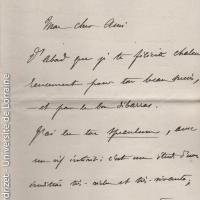 Mon cher Ami
D'abord que je te félicite chaleu
reusement pour ton beau succès,
et pour le bon débarras.
J'ai lu ton speculum, avec
un vif intérêt : c'est une étude d'une
érudition très-riche et très-vivante,
drzat - Université de Lorraine